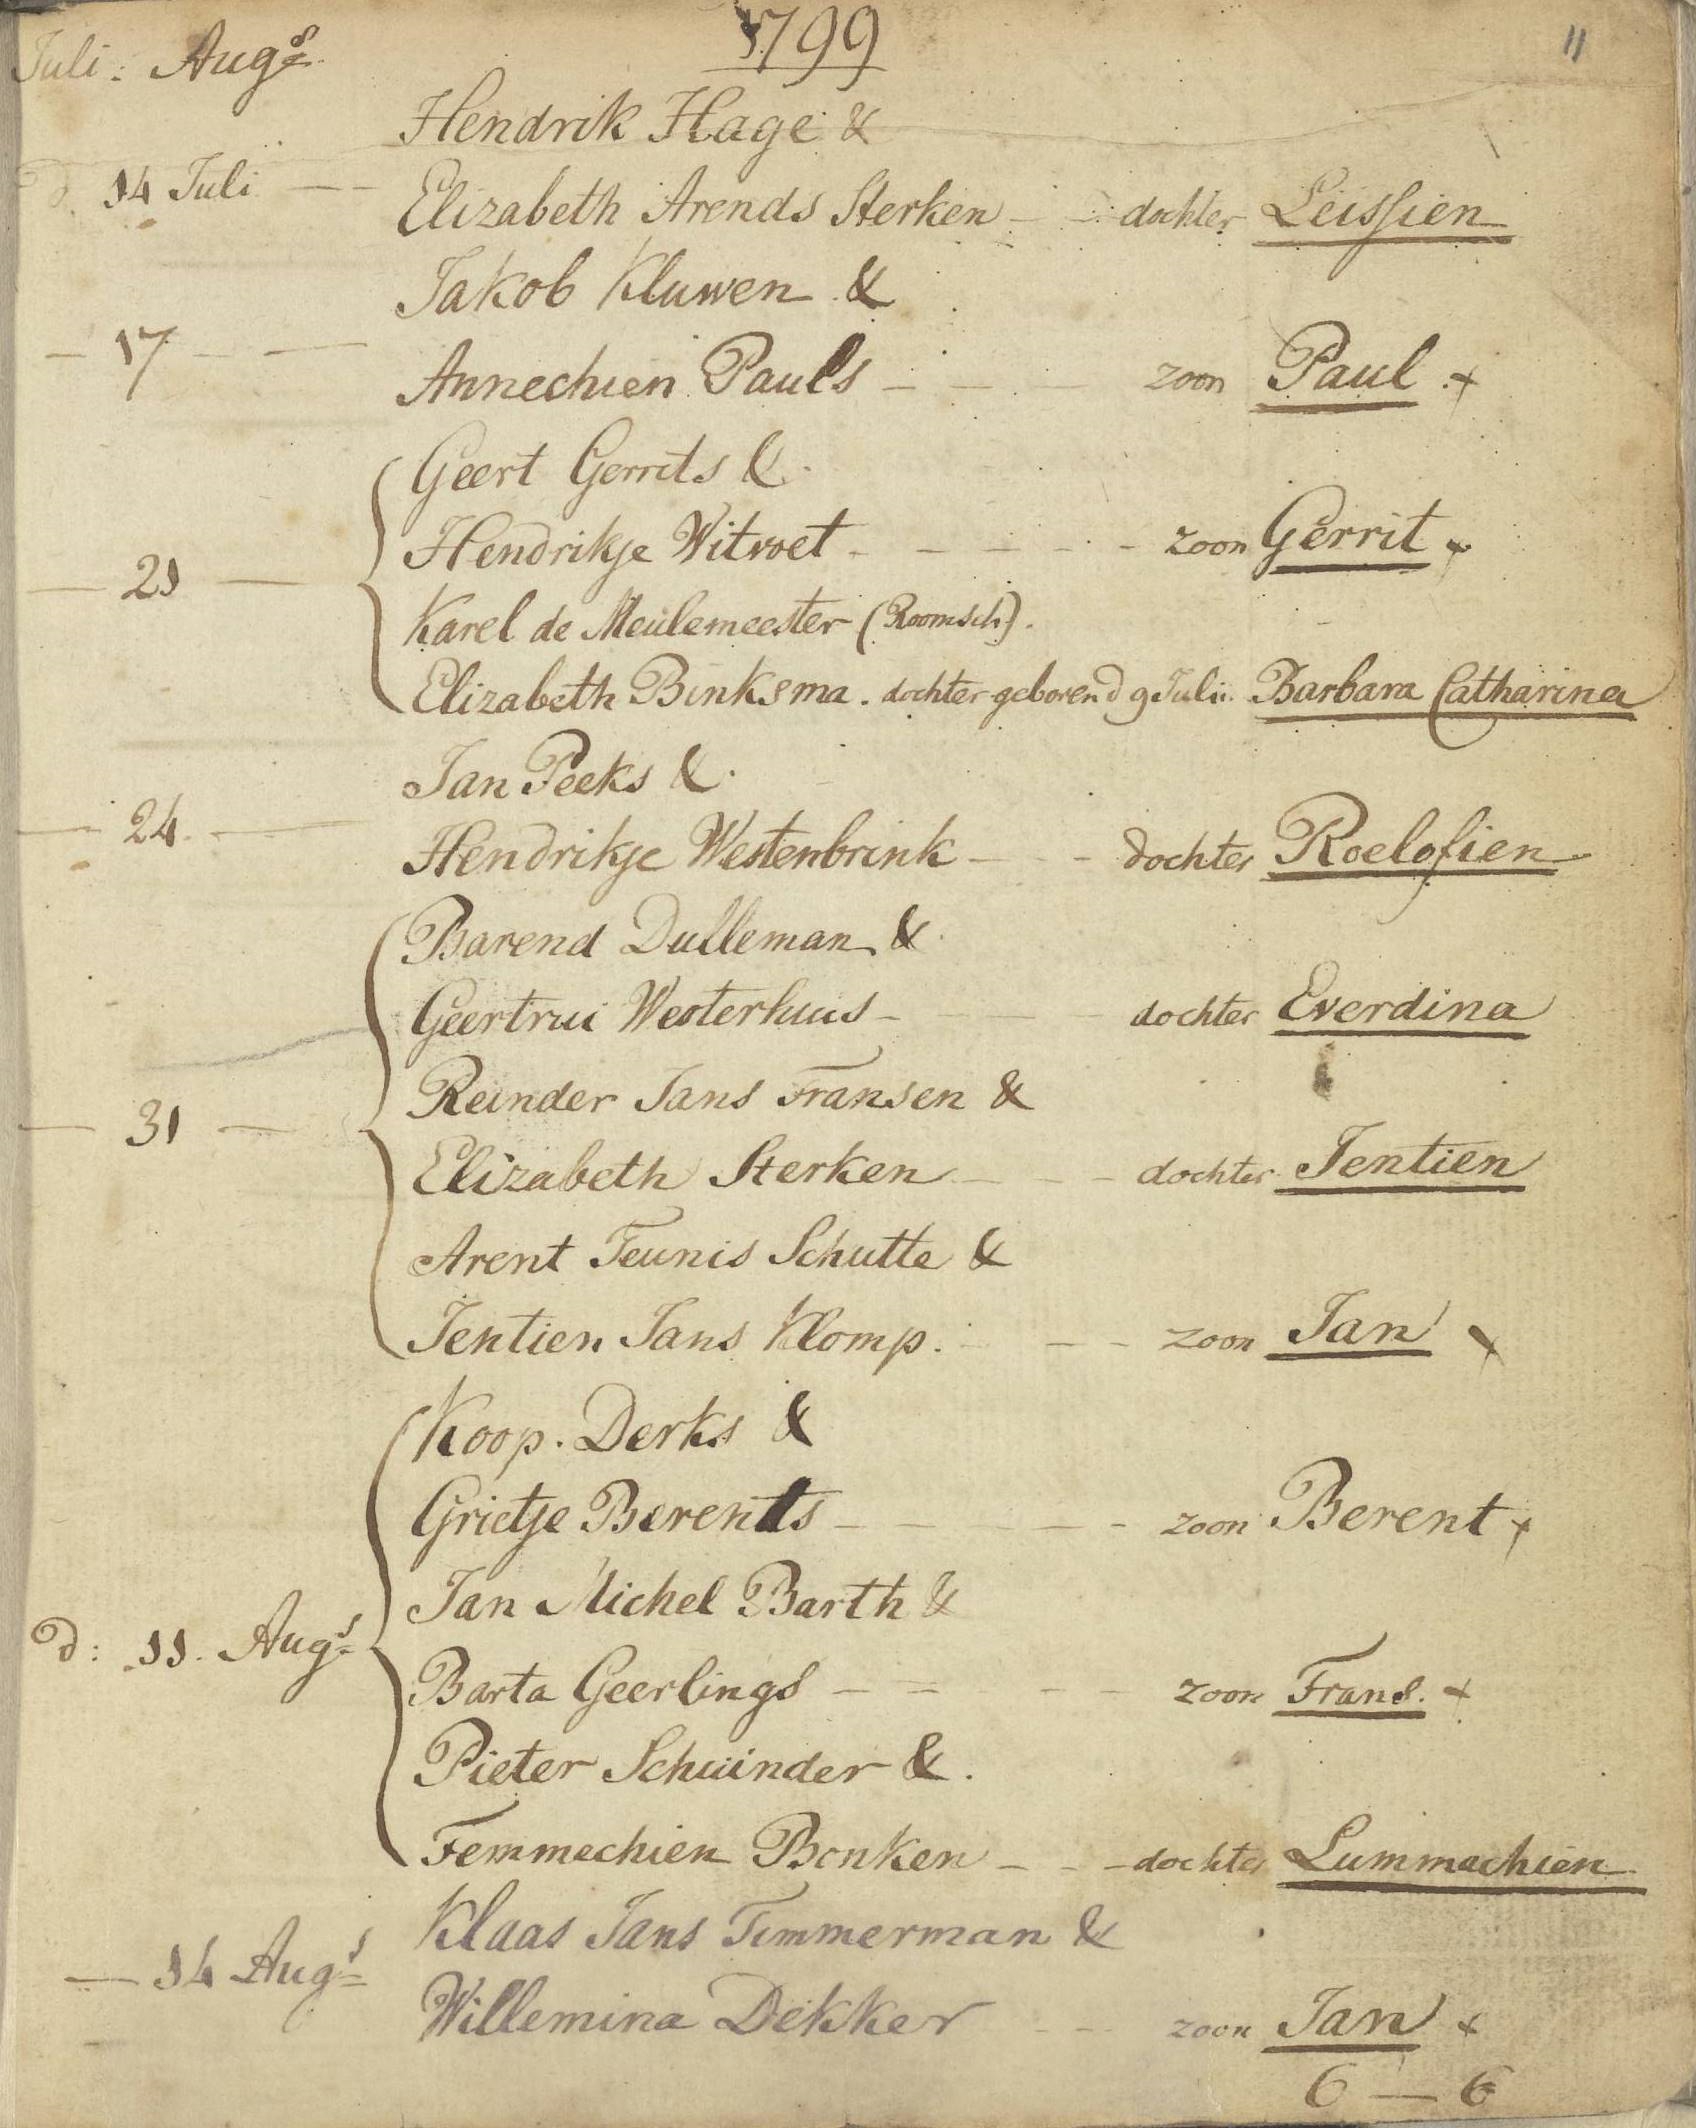 Juli: Augs. 1799 11
Hendrik Hage &
d. 14 Juli Elizabeth Arends Sterken dochter Leissien
Jakob Kluwen &
17 Annechien Pauls zoon Paul +
Geert Gerrits &
Hendrikje Witvoet zoon Gerrit +
21
Karel de Meulemeester (Roomsch).
Elizabeth Binksma. dochter geboren d 9 Julii. Barbara Catharina
Jan Peeks &
24 Hendrikje Westenbrink dochter Roelofien
Barend Dulleman &
Geertrui Westerhuis dochter Everdina
Reinder Jans Fransen &
31
Elizabeth Sterken dochter Jentien
Arent Teunis Schutte &
Jentien Jans Klomp. zoon Jan +
Koop. Derks &
Grietje Berents zoon Berent +
Jan Michel Barth &
d: 11. Augs
Barta Geerlings zoon Frans. +
Pieter Schuinder &.
Femmechien Bonken dochter Lummachien
Klaas Jans Timmerman &
14 Augs
Willemina Dekker zoon Jan +
6 — 6